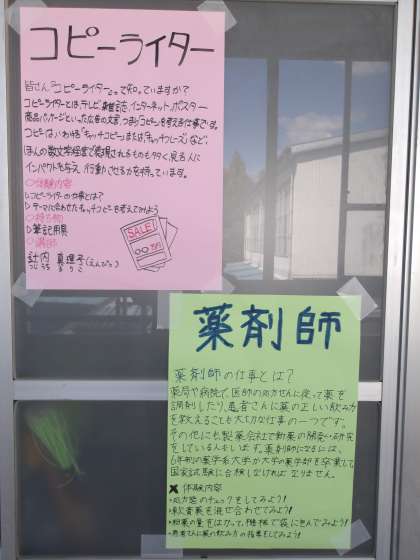 コピーライター
皆さん「コピーライター」って知っていますか?
コピーライターとは、テレビ、雑誌、インターネット、ポスター
商品パッケージといった広告の文言、つまり「コピー」を考える仕事です。
コピーは、いわゆる「キャッチコピー」または「キャッチフレーズ」など、
ほんの数文字程度で表現されるものも多く、見る人に
インパクトを与え、行動させる力を持っています。
○体験内容
▷コピーライターの仕事とは?
▷テーマに合わせたキャッチコピーを考えてみよう
○持ち物
▷筆記用具
○講師
辻内 真理子
つじうち まりこ
SALE!
薬剤師
薬剤師の仕事とは?
薬局や病院で、医師の処方せんに従って薬を
調剤したり、患者さんに薬の正しい飲み方
を教えることも大切な仕事の一つです。
その他にも製薬会社で新薬の開発や研究
をしている人もいます。薬剤師になるには、
6年制の薬学系大学か大学の薬学部を卒業して
国家試験に合格しなければなりません。
✖ 体験内容
・処方箋のチェックをしてみよう!
・軟膏薬を混ぜ合わせてみよう!
・粉薬の量をはかって機械で袋に包んでみよう!
・患者さんに薬の飲み方の指導をしてみよう!